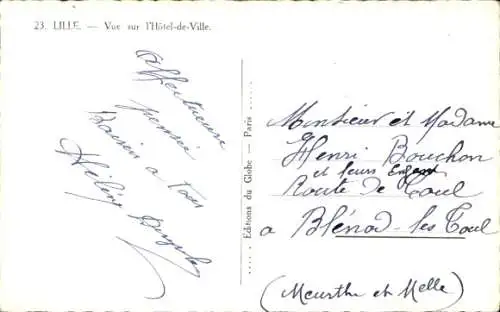 23. LILLE. — Vue sur l'Hôtel-de-Ville.
Affectueuse
pensée
Baisers à tous
Hélène
Editions du Globe — Paris
Monsieur et Madame
Henri Bouchon
et leurs Enfants
Route de Toul
a Blénod-les Toul
(Meurthe et Melle)